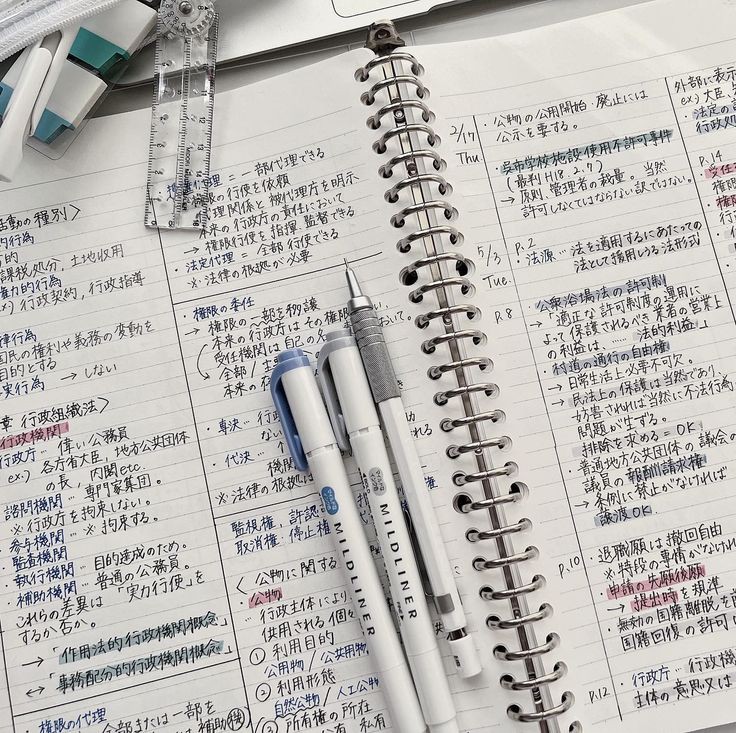 活動の種別〉
的行為
課税処分、土地収用
権力的行為
ex) 行政契約、行政指導
律行為
国民の権利や義務の変動を
目的とする
実行為 → しない
章 行政組織法〉
行政機関
行政庁 … 偉い公務員
ex.) 各庁省大臣、地方公共団体
の長、内閣etc.
諮問機関 … 専門家集団。
※行政庁を拘束しない。
・参与機関 … ※拘束する。
・監査機関
・執行機関 … 目的達成のため。
・補助機関 … 普通の公務員。
これらの差異は「実力行使」を
するか否か。
→「作用法的行政機関概念」
↔「事務配分的行政機関概念。」
・権限の代理
全部または一部を
代理 = 一部代理できる
権限の行使を依頼
代理関係と被代理庁を明示
本来の行政庁の責任において
→ 権限行使を指揮、監督できる
・法定代理 = 全部行使できる
※法律の根拠が必要
・権限の委任
→ 権限の一部を移譲
本来の行政庁はその権限
受任機関は自己の
全部/
本来の
・専決 …
・代決 …
※法律の根拠は
監視権、許認
取消権、停止権
〈公物に関する
公物
・行政主体により
供用される個
① 利用目的
公用物/公共用物
② 利用形態
自然公物/人工公物
③ 所有権の所在
MILDLINER
MILDLINER
2/17
Thu
・公物の公用開始、廃止には
公示を要する。
・呉市学校施設使用不許可事件
(最判H18.2.7)
→ 原則、管理者の裁量。当然
許可しなくてはならない訳ではない。
5/3
Tue.
P.2
・法源 … 法を適用するにあたっての
法として援用しうる法形式
P.8
・公衆浴場法の許可制
→「適正な許可制度の運用に
よって保護されるべき業者の営業上
の利益は、…… 法的利益」
・村道の通行の自由権
→ 日常生活上必要不可欠。
→ 民法上の保護は当然であり、
妨害されれば当然に不法行為
問題が生ずる。
排除を求める = OK
・普通地方公共団体の議会の
議員の報酬請求権
→ 条例に禁止がなければ
譲渡OK.
P.10
・退職願は撤回自由
※特段の事情がなければ
・申請の先願後願
→ 提出時を規準
・無効の国籍離脱を前
国籍回復の許可
P.12
・行政庁 … 行政機
主体の意思又は
外部に表示
ex) 大臣、
・法定の
行政処
P.14
・受任
権限